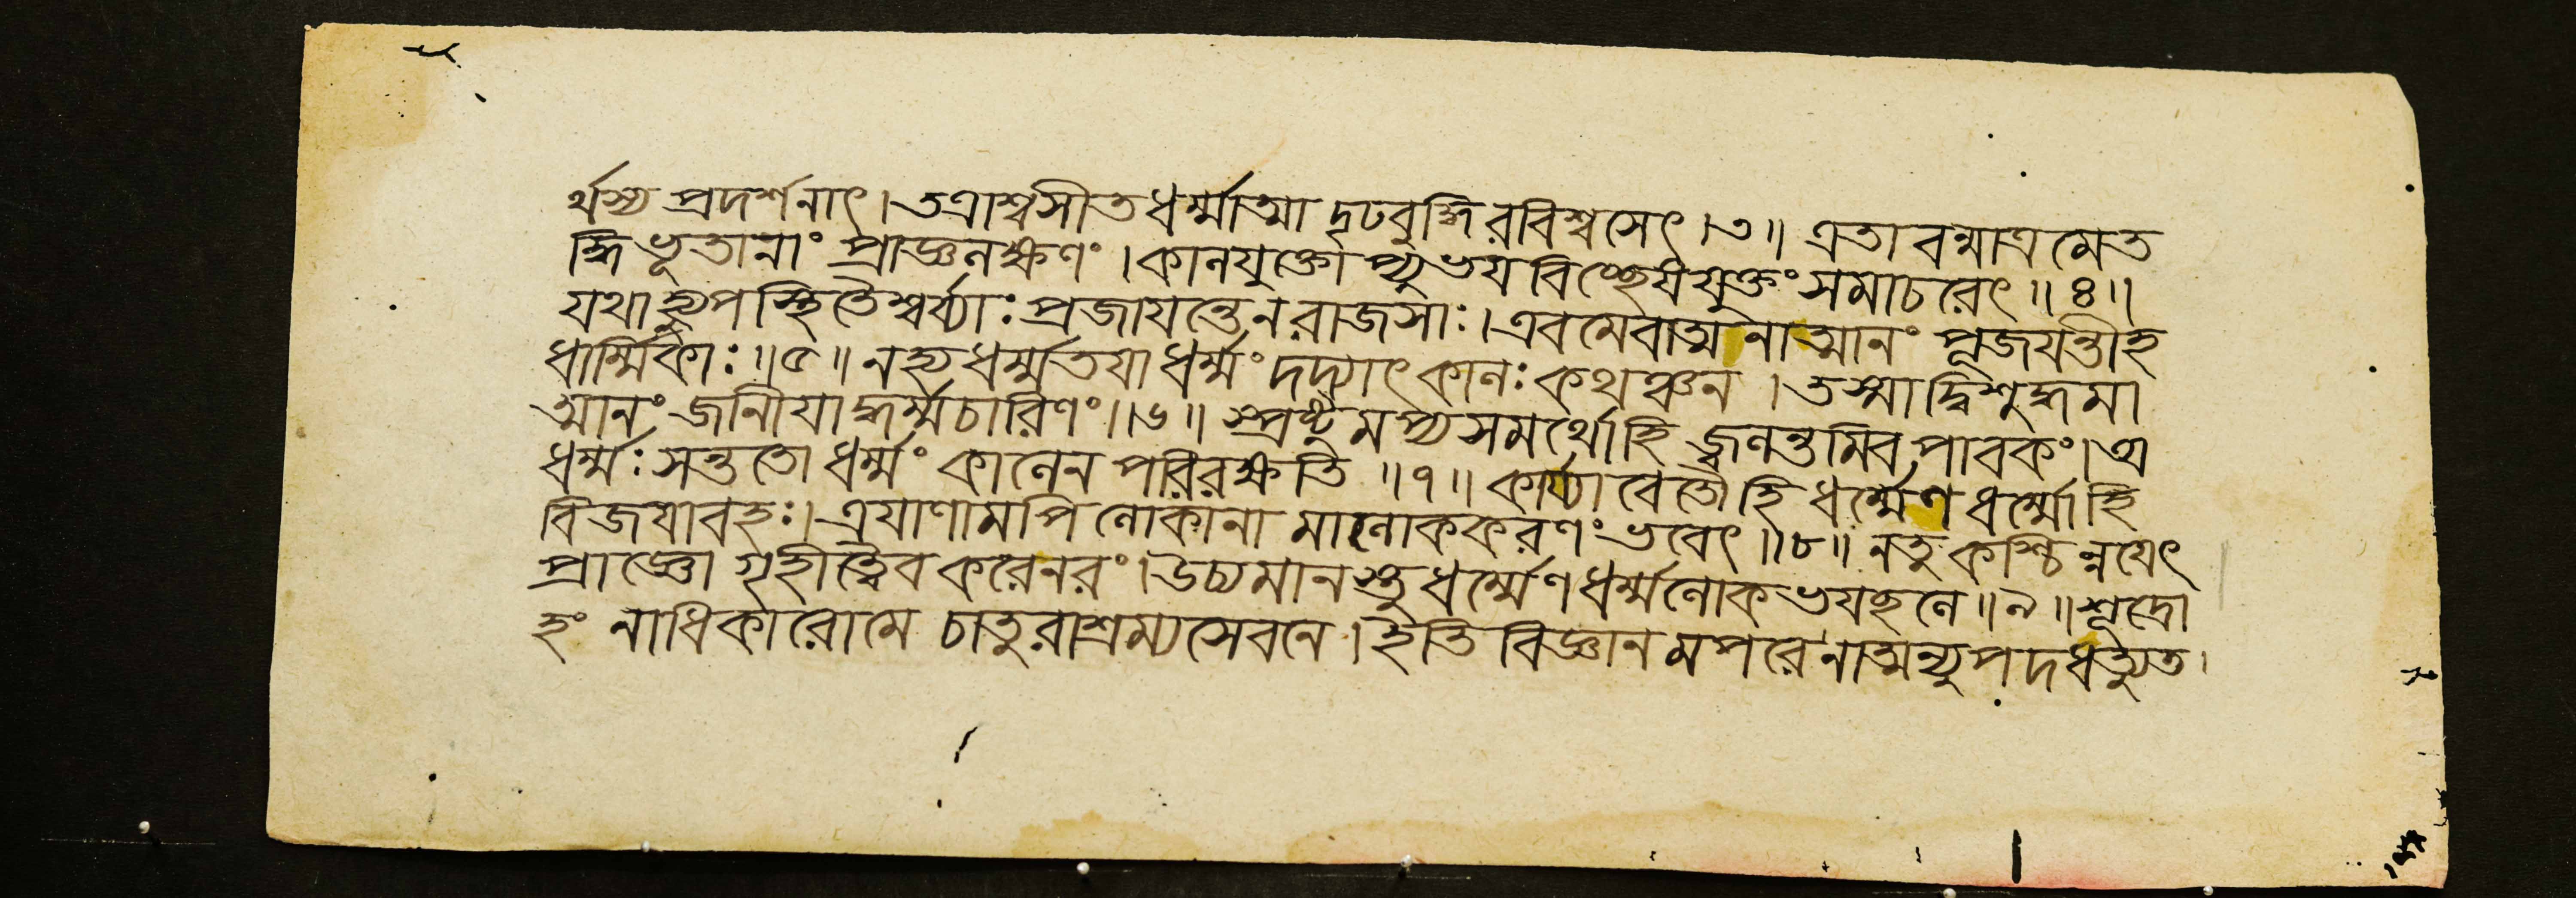 র্থস্য প্রদর্শনাৎ। তত্রাশ্বসীত ধর্ম্মাত্মা দৃঢবুদ্ধিরবিশ্বসেৎ। ৩॥ এতাবন্মাত্রমেত
দ্ধি ভূতানাং প্রাজ্ঞলক্ষণং। কালযুক্তোপ্যুভযবিচ্ছেষযুক্তং সমাচরেৎ॥ ৪॥
যথাহ্যুপস্থিতৈশ্বর্য্যাঃ প্রজাযন্তেন রাজসাঃ। এবমেবাত্মনাত্মানং পূজযন্তীহ
ধার্ম্মিকাঃ॥ ৫॥ নহ্যধর্ম্মতযা ধর্ম্মং দদ্যাৎ কালঃ কথঞ্চন। তস্মাদ্বিশুদ্ধমা
ত্মানং জানীযাদ্ধর্ম্মচারিণং॥ ৬॥ স্প্রষ্টুমপ্যসমর্থোহি জ্বলন্তমিব পাবকং। অ
ধর্ম্মঃ সন্ততো ধর্ম্মং কালেন পরিরক্ষতি॥ ৭॥ কার্য্যাবেতৌহি ধর্ম্মেণ ধর্ম্মোহি
বিজযাবহঃ। ত্রযাণামপি লোকানা মালোককরণং ভবেৎ॥ ৮॥ নতু কশ্চিন্নযেৎ
প্রাজ্ঞো গৃহীত্বৈব করেনরং। উচ্যমানস্তু ধর্ম্মেণ ধর্ম্মলোকভযচ্ছলে॥ ৯॥ শূদ্রো
হং নাধিকারোমে চাতুরাশ্রম্যসেবনে। ইতি বিজ্ঞানমপরেনাত্মন্যুপদধত্যুত।